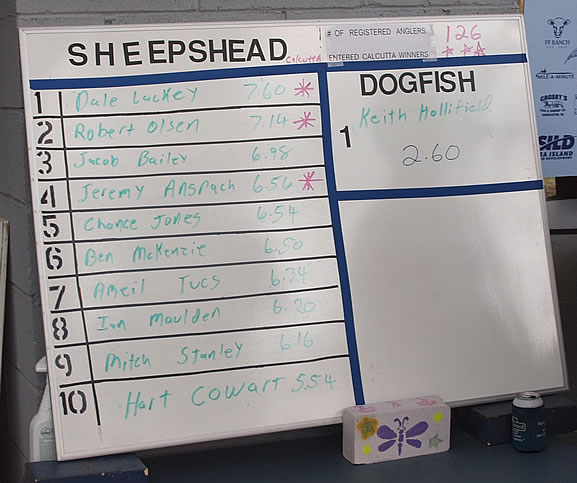 SHEEPSHEAD Calcutta
# OF REGISTERED ANGLERS 126
ENTERED CALCUTTA WINNERS ***
1 Dale Lackey 7.60 *
2 Robert Olsen 7.14 *
3 Jacob Bailey 6.98
4 Jeremy Anspach 6.56 *
5 Chance Jones 6.54
6 Ben McKenzie 6.50
7 Ameil Tucs 6.34
8 Ian Maulden 6.20
9 Mitch Stanley 6.16
10 Hart Cowart 5.54
DOGFISH
1 Keith Hollifield
2.60
FF RANCH
MILE-A-MINUTE
CROSBY'S